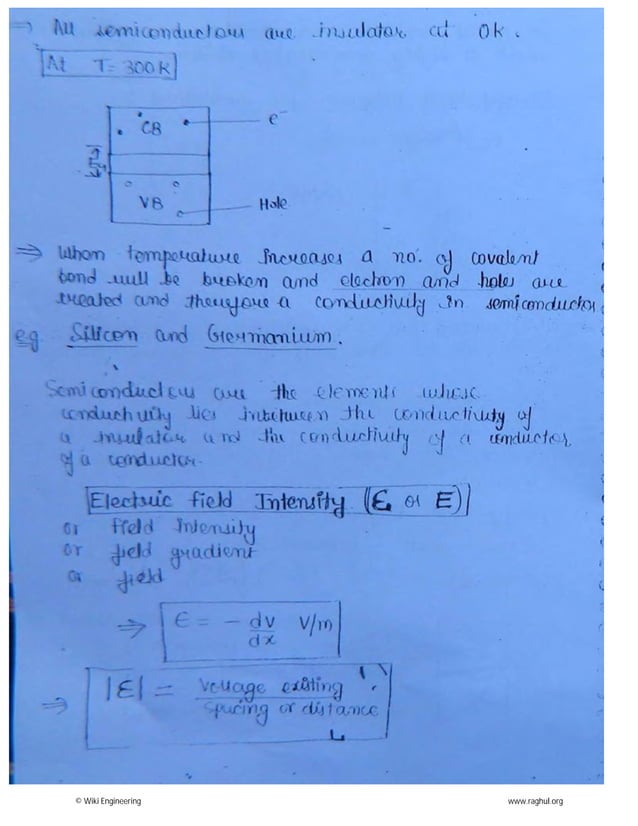 ⇒ All semiconductors are insulator at 0k.
At T = 300K
CB
e⁻
VB
Hole
⇒ When temperature Increases a no. of covalent
bond will be broken and electron and holes are
created and therefore a conductivity in semiconductor
eg. Silicon and Germanium.
Semiconductors are the elements whose
conductivity lies inbetween the conductivity of
a insulator and the conductivity of a conductor
of a conductor.
Electric field Intensity (Ɛ or E)
or field Intensity
or field gradient
or field
⇒ Ɛ = - dv/dx V/m
⇒ |Ɛ| = Voltage existing / Spacing or distance
© Wiki Engineering
www.raghul.org